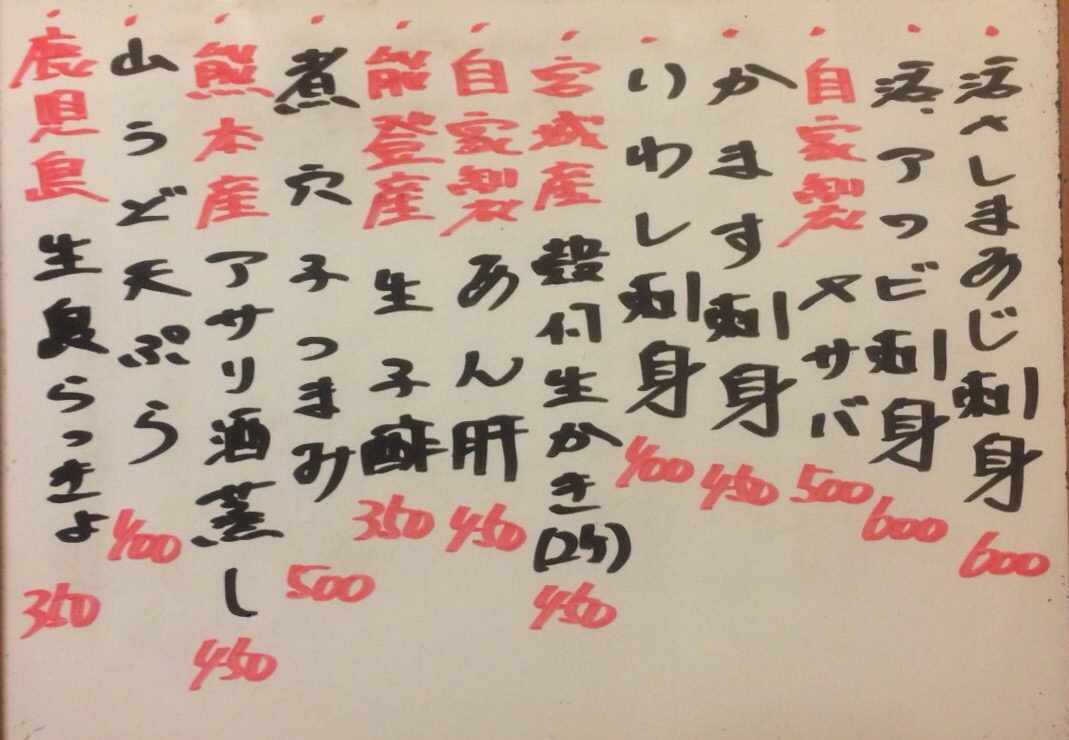 ・活〆しまあじ刺身 600
・活、アワビ刺身 600
・自家製 〆サバ 500
・かます刺身 450
・いわし刺身 400
・宮城産 殻付生かき(2ケ) 450
・自家製 あん肝 450
・能登産 生子酢 350
・煮穴子つまみ 500
・熊本産 アサリ酒蒸し 450
・山うど天ぷら 400
・鹿児島 生島らっきょ 350